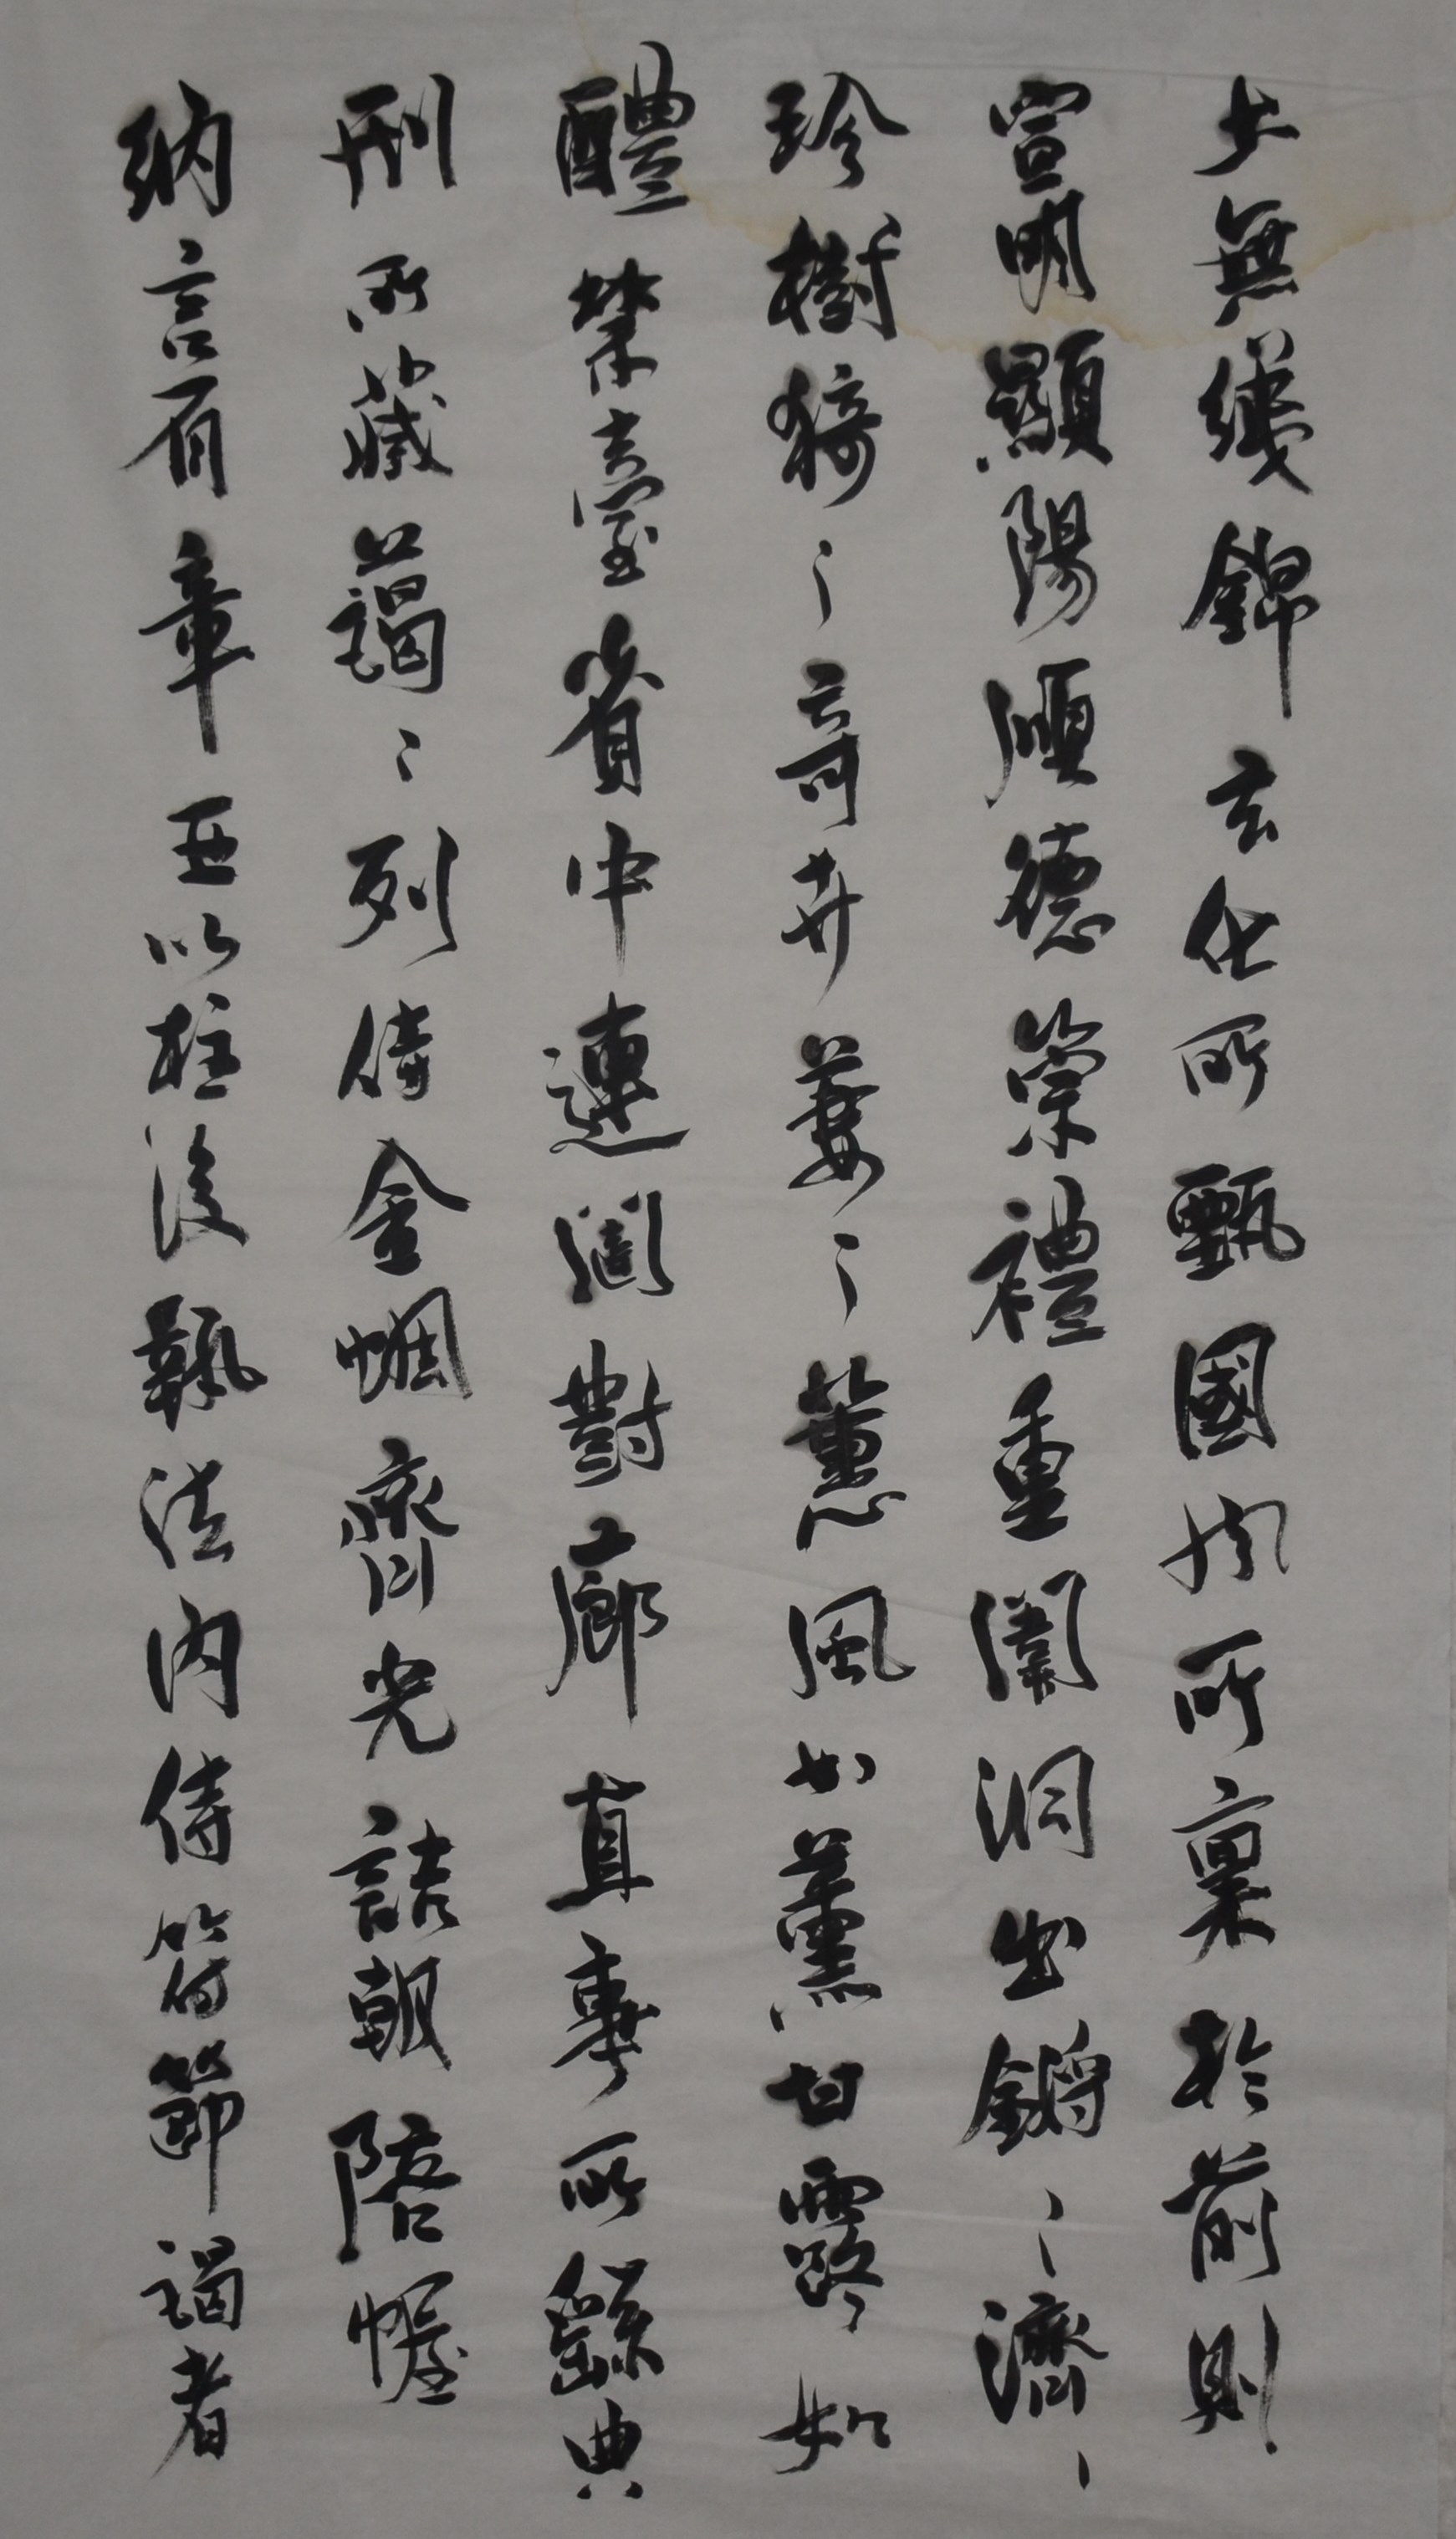 土無錦玄化所甄國風所稟於前則
宣明顯陽順德崇禮重闈洞出鏘〻濟〻
珍樹猗〻奇卉萋〻蕙風如薰甘露如
醴禁臺省中連闥對廊直事所繇典
刑所藏藹〻列侍金蜩齊光詰朝陪幄
納言有章亞以柱後執法內侍符節謁者